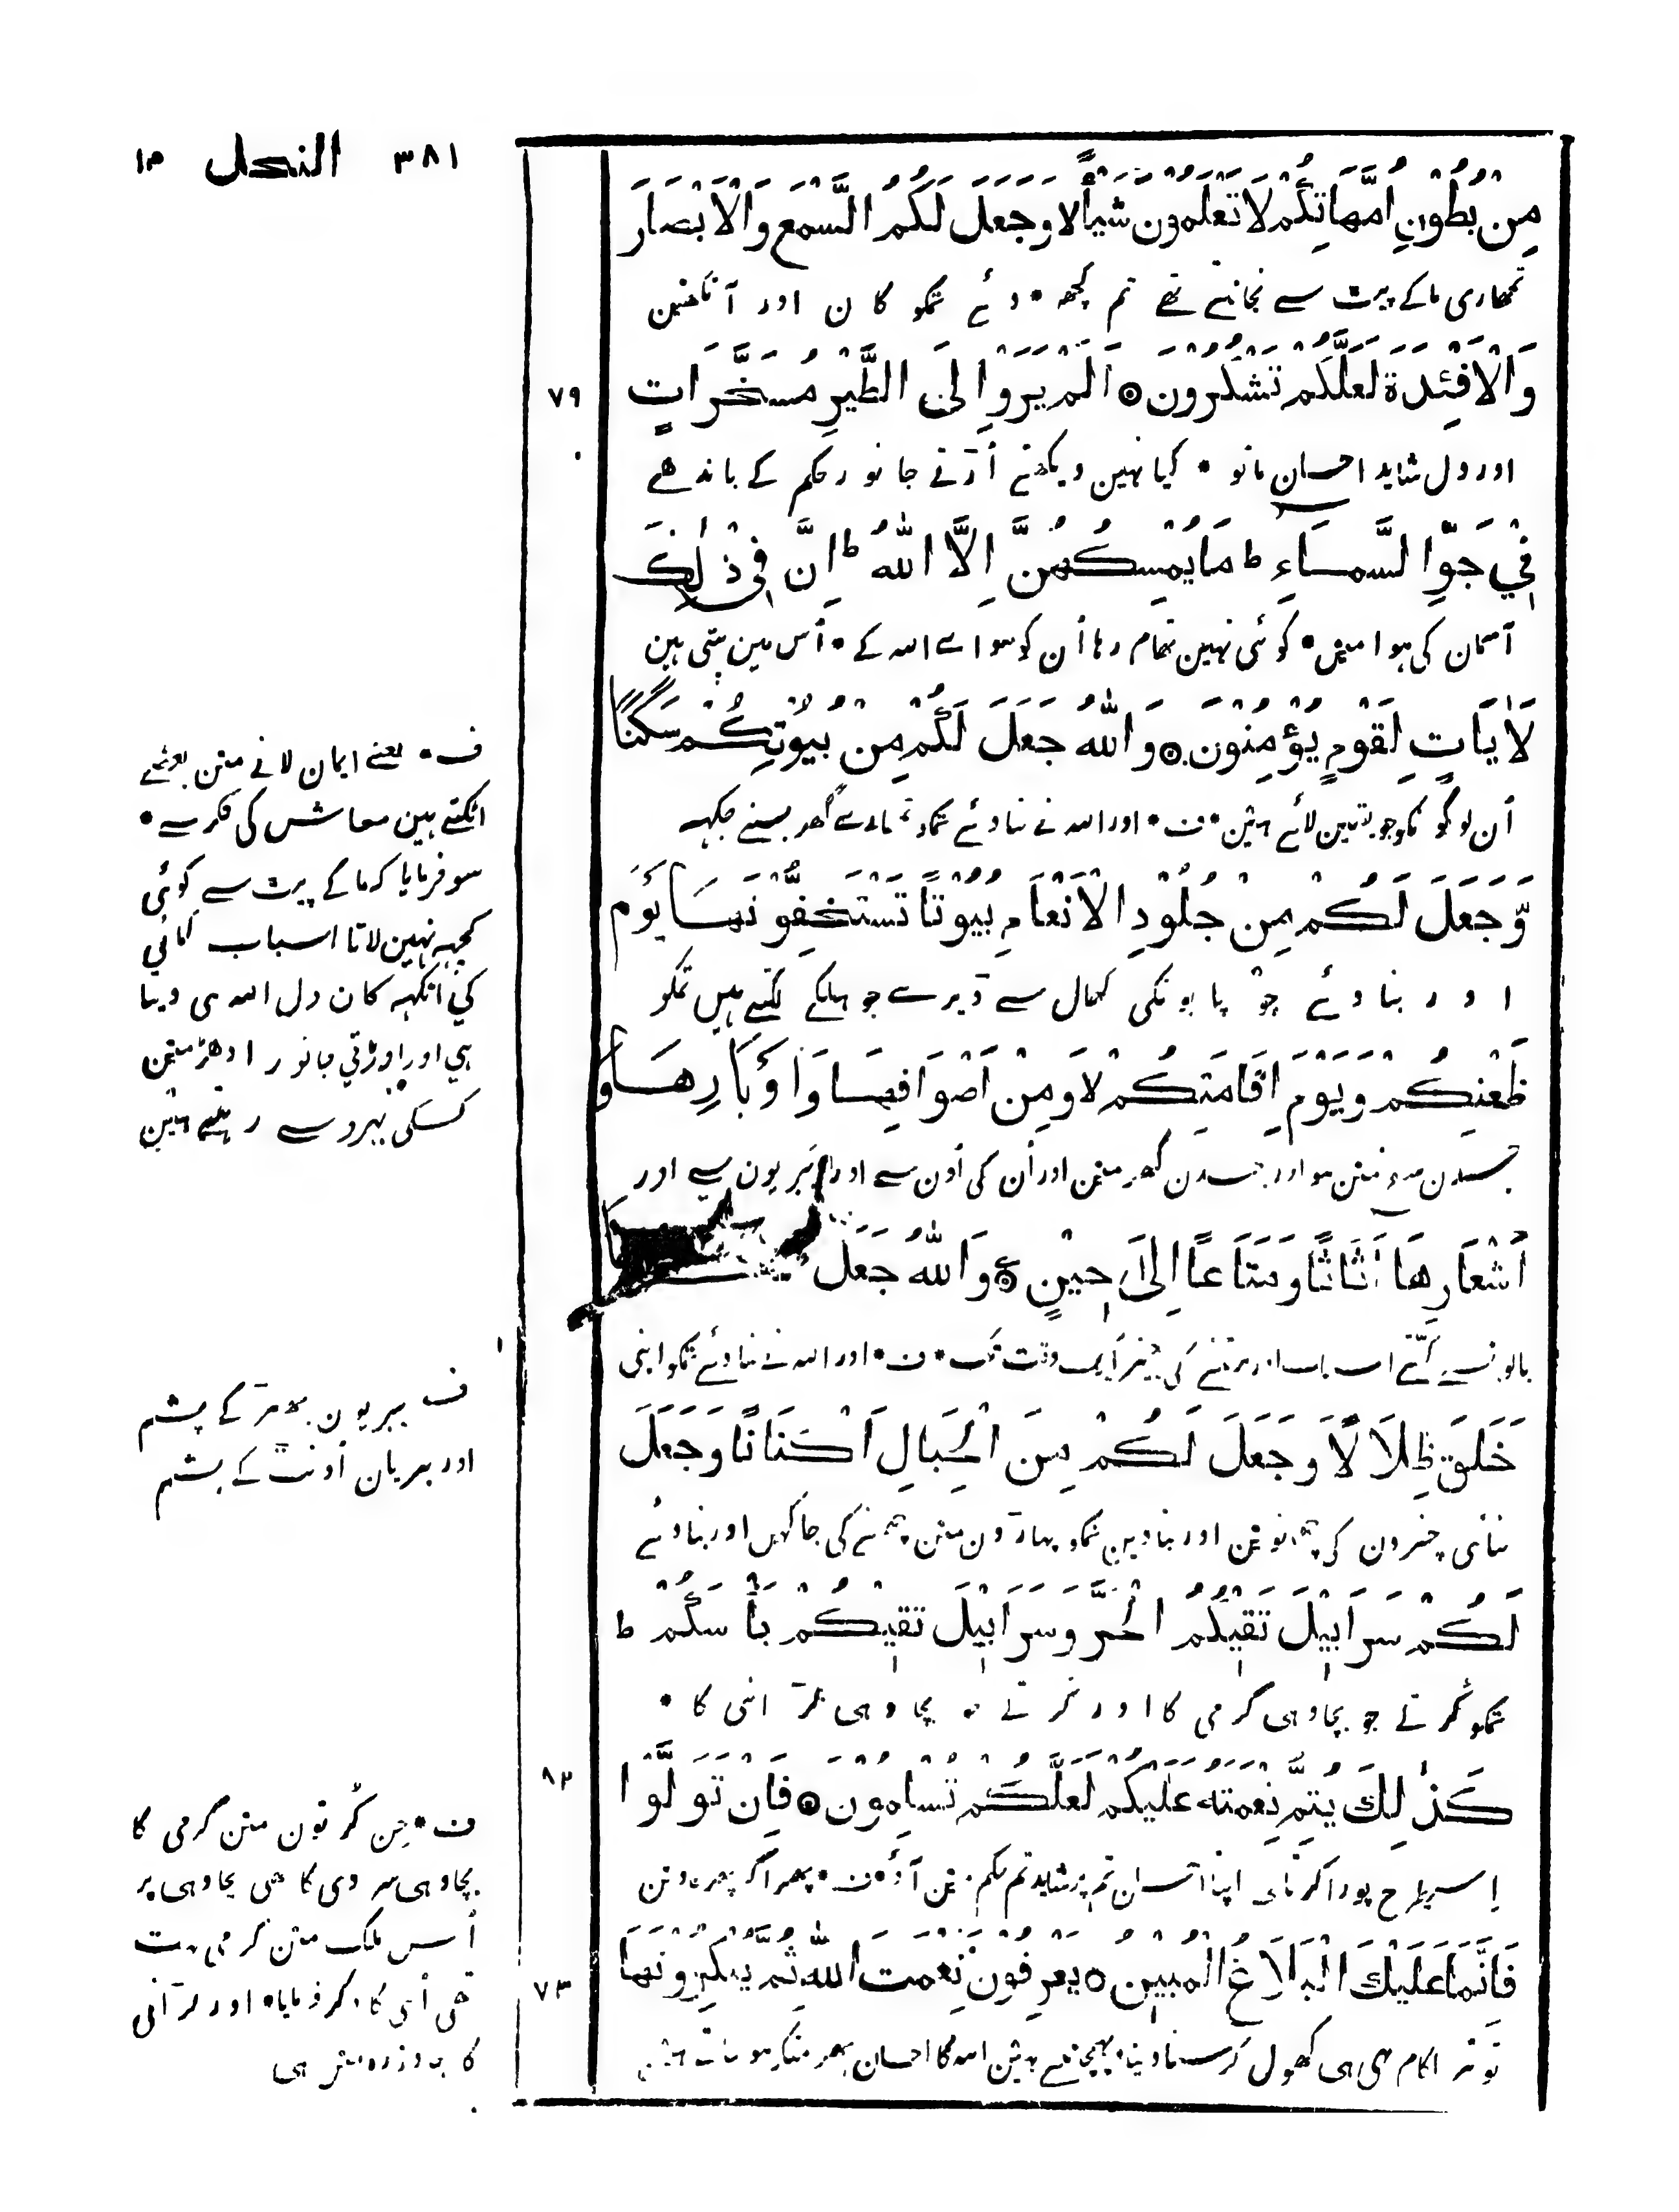 ٣٨١ النحل ١٣
مِنْ بُطُوْنِ اُمَّهَاتِكُمْ لَا تَعْلَمُوْنَ شَيْأً لا وَجَعَلَ لَكُمُ السَّمْعَ وَالْاَبْصَارَ
تمھاری ما کے پیٹ سے نجانتے تھے تم کچھ • دئے تمکو کان اور آنکھین
وَالْاَفْئِدَةَ لَعَلَّكُمْ تَشْكُرُوْنَ ۞ اَلَمْ يَرَوْا اِلَى الطَّيْرِ مُسَخَّرَاتٍ
٧٩
اور دل شاید احسان مانو • کیا نہین دیکھتے اُڑتے جانور حکم کے باندھے
فِيْ جَوِّ السَّمَاءِ ط مَا يُمْسِكُهُنَّ اِلَّا اللّٰهُ ط اِنَّ فِيْ ذٰلِكَ
آسمان کی ہوا مین • کوئی نہین تھام رہا اُن کو سواے الله کے • اُس مین پتی ہین
لَاٰيَاتٍ لِقَوْمٍ يُؤْمِنُوْنَ ۞ وَاللّٰهُ جَعَلَ لَكُمْ مِنْ بُيُوْتِكُمْ سَكَنًا
اُن لوگو نکو جو یقین لائے ہین • ف • اور الله نے بنا دئے تمکو تمہارے گھر بسنے جگہہ
وَّجَعَلَ لَكُمْ مِنْ جُلُوْدِ الْاَنْعَامِ بُيُوْتًا تَسْتَخِفُّوْنَهَا يَوْمَ
اور بنا دئے چوپایونکی کھال سے ڈیرے جو ہلکے لگتے ہین تمکو
ظَعْنِكُمْ وَيَوْمَ اِقَامَتِكُمْ لا وَمِنْ اَصْوَافِهَا وَاَوْبَارِهَا وَ
جسدن سفر مین ہو اور جسدن گھر مین اور اُن کی اُون سے اور ببریون سے اور
اَشْعَارِهَا اَثَاثًا وَّمَتَاعًا اِلٰى حِيْنٍ ۞ وَاللّٰهُ جَعَلَ
بالونسے کتے اسباب اور برتنے کی چیز ایک وقت تک • ف • اور الله نے بنا دئے تمکو اپنی
خَلَقَ ظِلَالًا وَّجَعَلَ لَكُمْ مِنَ الْجِبَالِ اَكْنَانًا وَّجَعَلَ
بنائی چیزون کی چھانوین اور بنا دین تمکو پہاڑون مین چھپنے کی جاگہین اور بنا دئے
لَكُمْ سَرَابِيْلَ تَقِيْكُمُ الْحَرَّ وَسَرَابِيْلَ تَقِيْكُمْ بَأْسَكُمْ ط
تمکو کُرتے جو بچاو ہی گرمی کا اور کُرتے جو بچاو ہی لڑائی کا •
كَذٰلِكَ يُتِمُّ نِعْمَتَهُ عَلَيْكُمْ لَعَلَّكُمْ تُسْلِمُوْنَ ۞ فَاِنْ تَوَلَّوْا
٨٣
اِسیطرح پورا کرتا ہی اپنا احسان تم پر شاید تم حکم مین آؤ • ف • پھر اگر پھر جاوین
فَاِنَّمَا عَلَيْكَ الْبَلَاغُ الْمُبِيْنُ ۞ يَعْرِفُوْنَ نِعْمَتَ اللّٰهِ ثُمَّ يُنْكِرُوْنَهَا
٧٣
تو تیرا کام یہی ہی کھول کر سنا دینا • پہچانتے ہین الله کا احسان پھر منکر ہو جاتے ہین
ف • یعنے ایمان لانے مین بعضے
اٹکتے ہین معاش کی فکر سے •
سو فرمایا کہ ما کے پیٹ سے کوئی
کچہہ نہین لاتا اسباب کمائی
کی آنکہہ کان دل الله ہی دیتا
ہی اور اوڑتی جانور ادھر مین
کسکی بہروسے رہتے ہین
ف ببریون بھیڑ کے پشم
اور ببریان اُونٹ کے پشم
ف • جن کُرتون مین گرمی کا
بچاو ہی سردی کا بھی بچاو ہی پر
اُس ملک مین گرمی بہت
تھی اُسی کا ذکر فرمایا • اور لڑائی
کا بچاو زرہ مین ہی